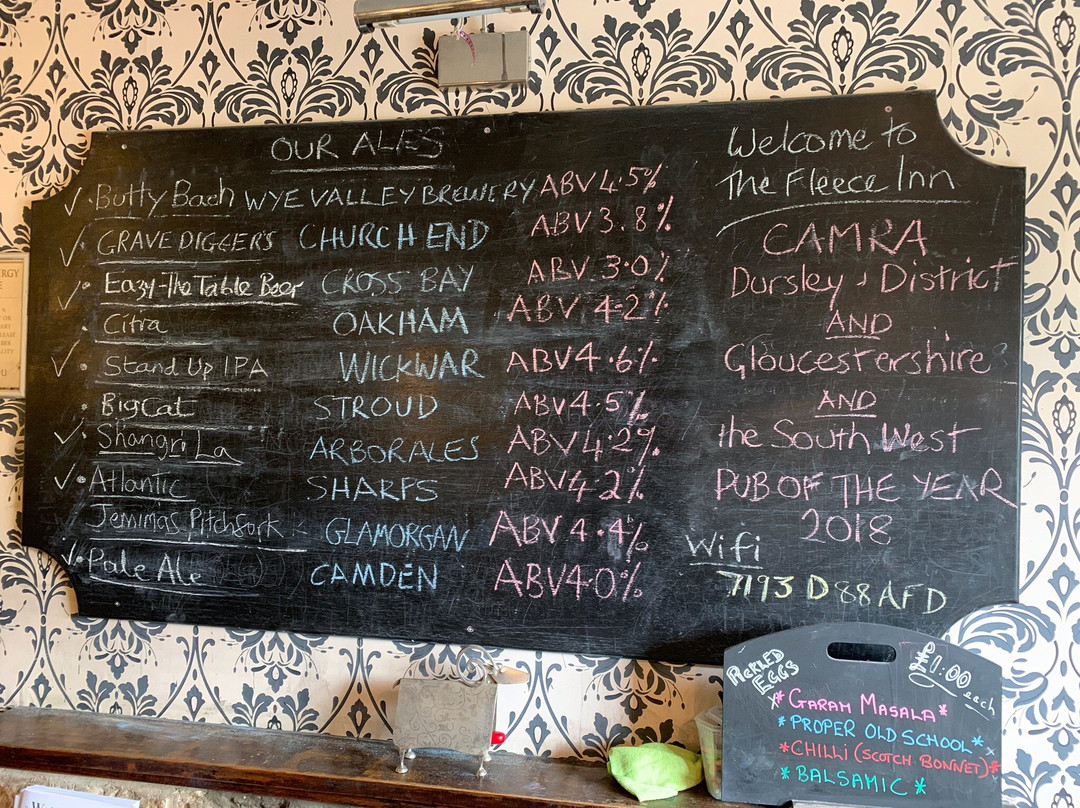 OUR ALES
✓ · Butty Bach WYE VALLEY BREWERY ABV 4.5%
✓ · GRAVE DIGGER'S CHURCH END ABV 3.8%
✓ · Eazy-The Table Beer CROSS BAY ABV 3.0%
· Citra OAKHAM ABV 4.2%
✓ · Stand Up IPA WICKWAR ABV 4.6%
· Big Cat STROUD ABV 4.5%
✓ · Shangri La ARBOR ALES ABV 4.2%
✓ · Atlantic SHARPS ABV 4.2%
Jemimas Pitchfork GLAMORGAN ABV 4.4%
✓ · Pale Ale CAMDEN ABV 4.0%
Welcome to
The Fleece Inn
CAMRA
Dursley & District
AND
Gloucestershire
AND
the South West
PUB OF THE YEAR
2018
Wifi
7193D88AFD
PICKLED
EGGS
£1.00 each
* GARAM MASALA *
* PROPER OLD SCHOOL *
* CHILLI (SCOTCH BONNET) *
* BALSAMIC *